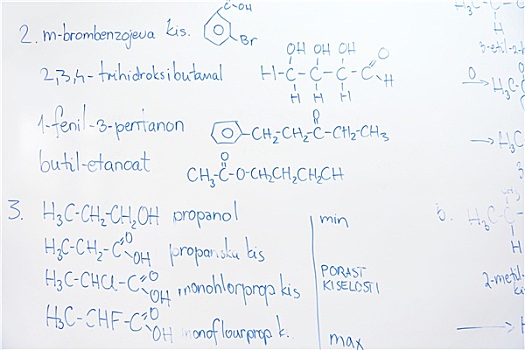 2. m-brombenzojeva kis. C-OH Br
2,3,4-trihidroksibutanal H-C-C-C-C OH OH OH O H H H H
1-fenil-3-pentanon -CH2-CH2-C-CH2-CH3 O
butil-etanoat CH3-C-O-CH2CH2CH2CH O
3. H3C-CH2-CH2OH propanol min
H3C-CH2-C O OH propanska kis
H3C-CHCl-C O OH monohlorprop kis PORAST KISELOSTI
H3C-CHF-C O OH monoflourprop k. max
3-etil-2-
O H3C-C
H3C
b. H3C-C
H
2-metil-